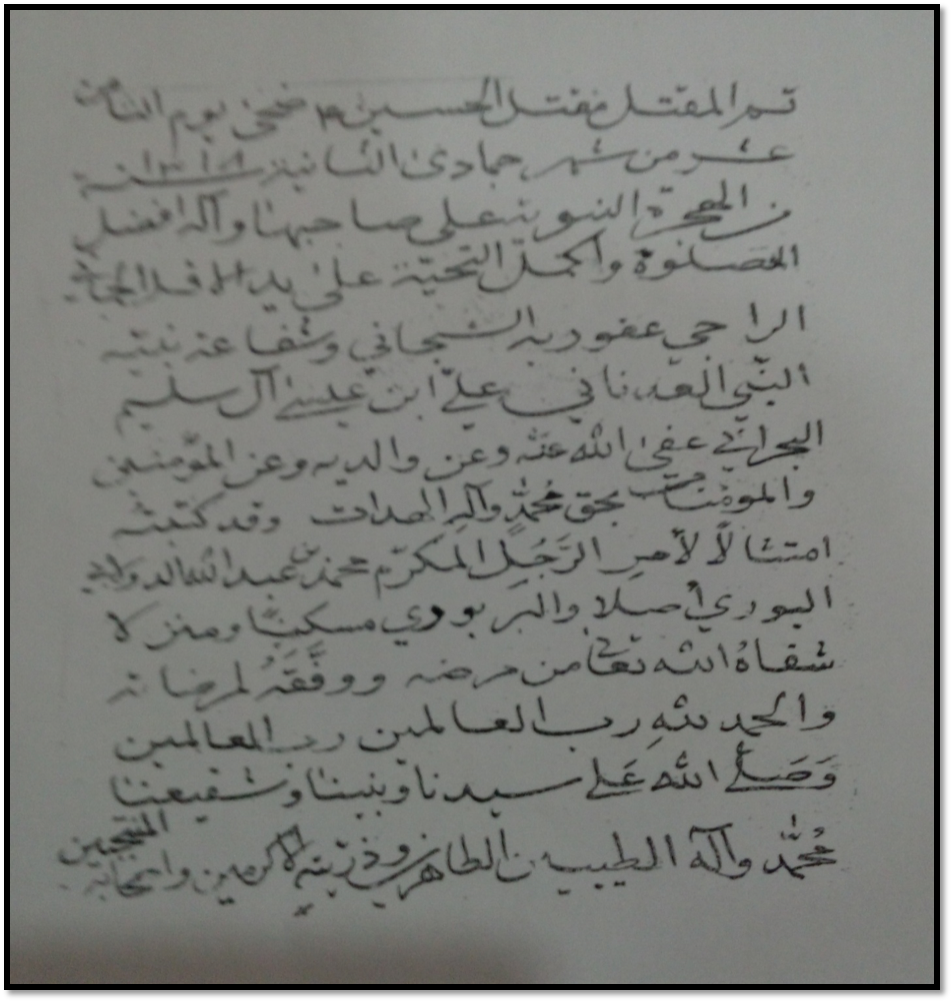 تم المقتل مقتل الحسين ضحى يوم الثامن
عشر من شهر جمادى الثانية سنة ١٣١٨
من الهجرة النبوية على صاحبها وآله افضل
الصلوة واكمل التحية على يد الجاني
الراجي عفو ربه السبحاني وشفاعة نبيه
النبي العدناني علي ابن عيسى آل سليم
البحراني عفى الله عنه وعن والديه وعن المؤمنين
والمومنات بحق محمد وآله الهدات وقد كتبته
امتثالاً لأمرِ الرَجُلِ المكرّم محمد بن عبد الله
البوري أصلا والبربودي مسكنًا ومنزلا
شفاهُ الله تعا من مرضه ووفَّقَهُ لمرضاته
والحمد للهِ رب العالمين رب العالمين
وَصَلى الله عَلى سيدنا ونبينا وشفيعنا
مُحمَّد وآله الطيبين الطاهرين وذريته الاكرمين واصحابه
المنتجبين